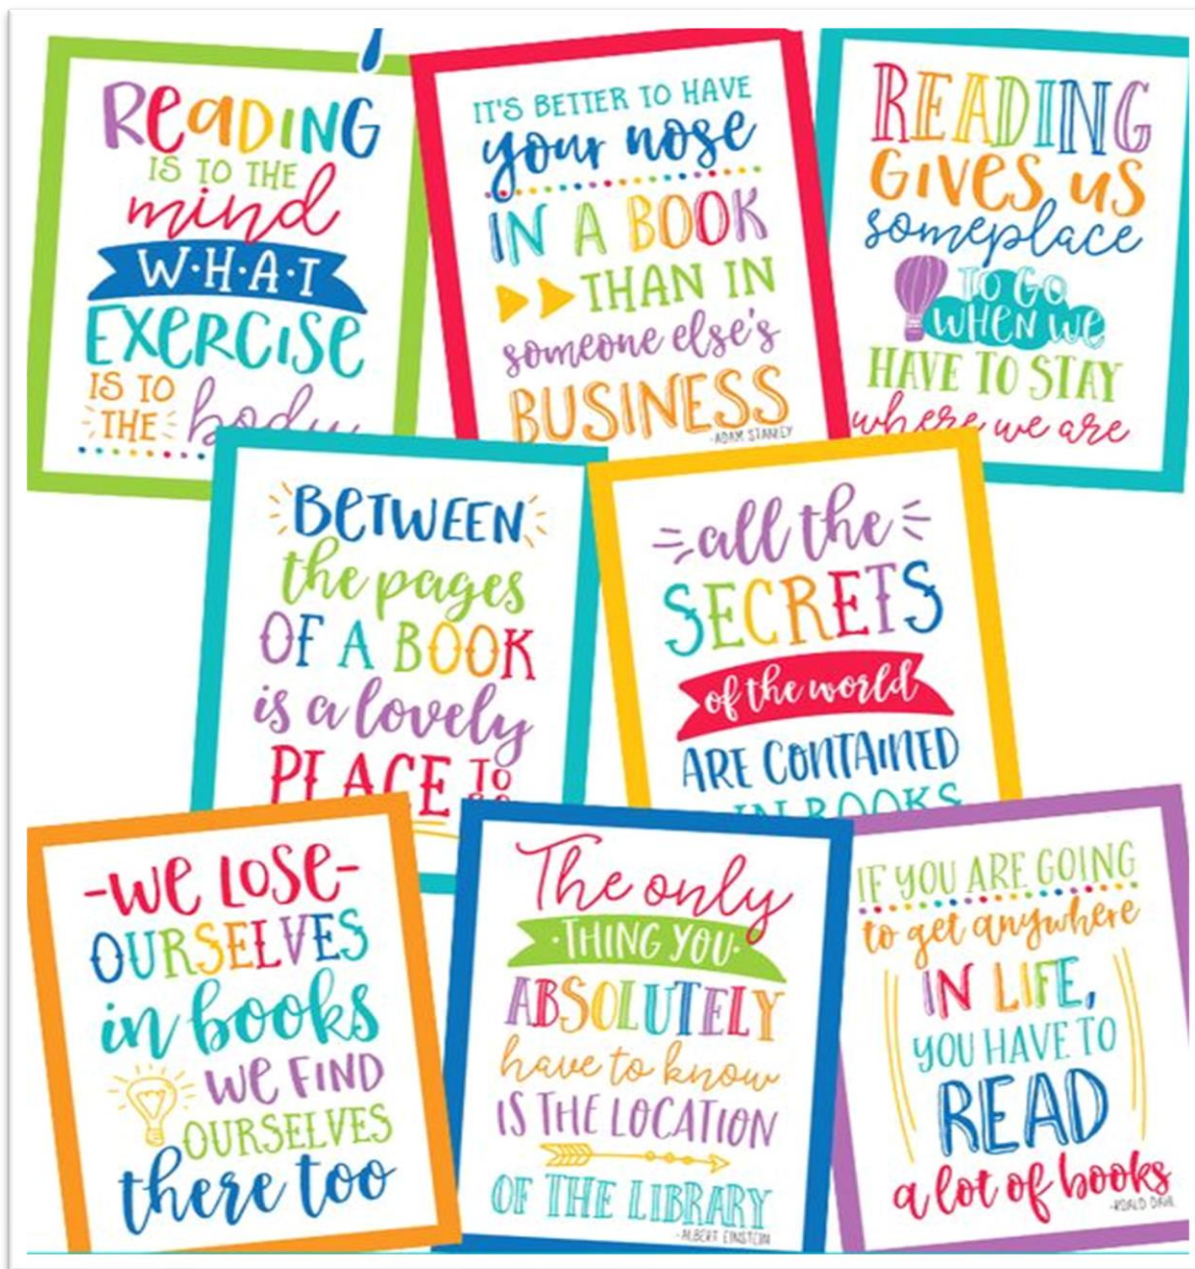 Reading
IS TO THE
mind
W·H·A·T
EXERCISE
IS TO
THE body
IT'S BETTER TO HAVE
your nose
IN A BOOK
THAN IN
someone else's
BUSINESS
-ADAM STANLEY
READING
GIVES US
someplace
TO GO
WHEN WE
HAVE TO STAY
where we are
BETWEEN
the pages
OF A BOOK
is a lovely
PLACE TO
all the
SECRETS
of the world
ARE CONTAINED
IN BOOKS
-WE LOSE-
OURSELVES
in books
WE FIND
OURSELVES
there too
The only
·THING YOU·
ABSOLUTELY
have to know
IS THE LOCATION
OF THE LIBRARY
-ALBERT EINSTEIN
IF YOU ARE GOING
to get anywhere
IN LIFE,
YOU HAVE TO
READ
a lot of books
-ROALD DAHL